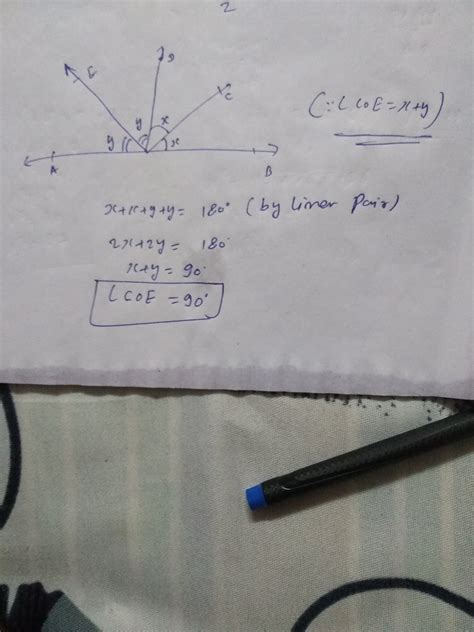 2
E
D
C
y x
y x
A B
(∵ ∠COE = x+y)
x+x+y+y = 180° (by liner Pair)
2x+2y = 180°
x+y = 90°
∠COE = 90°